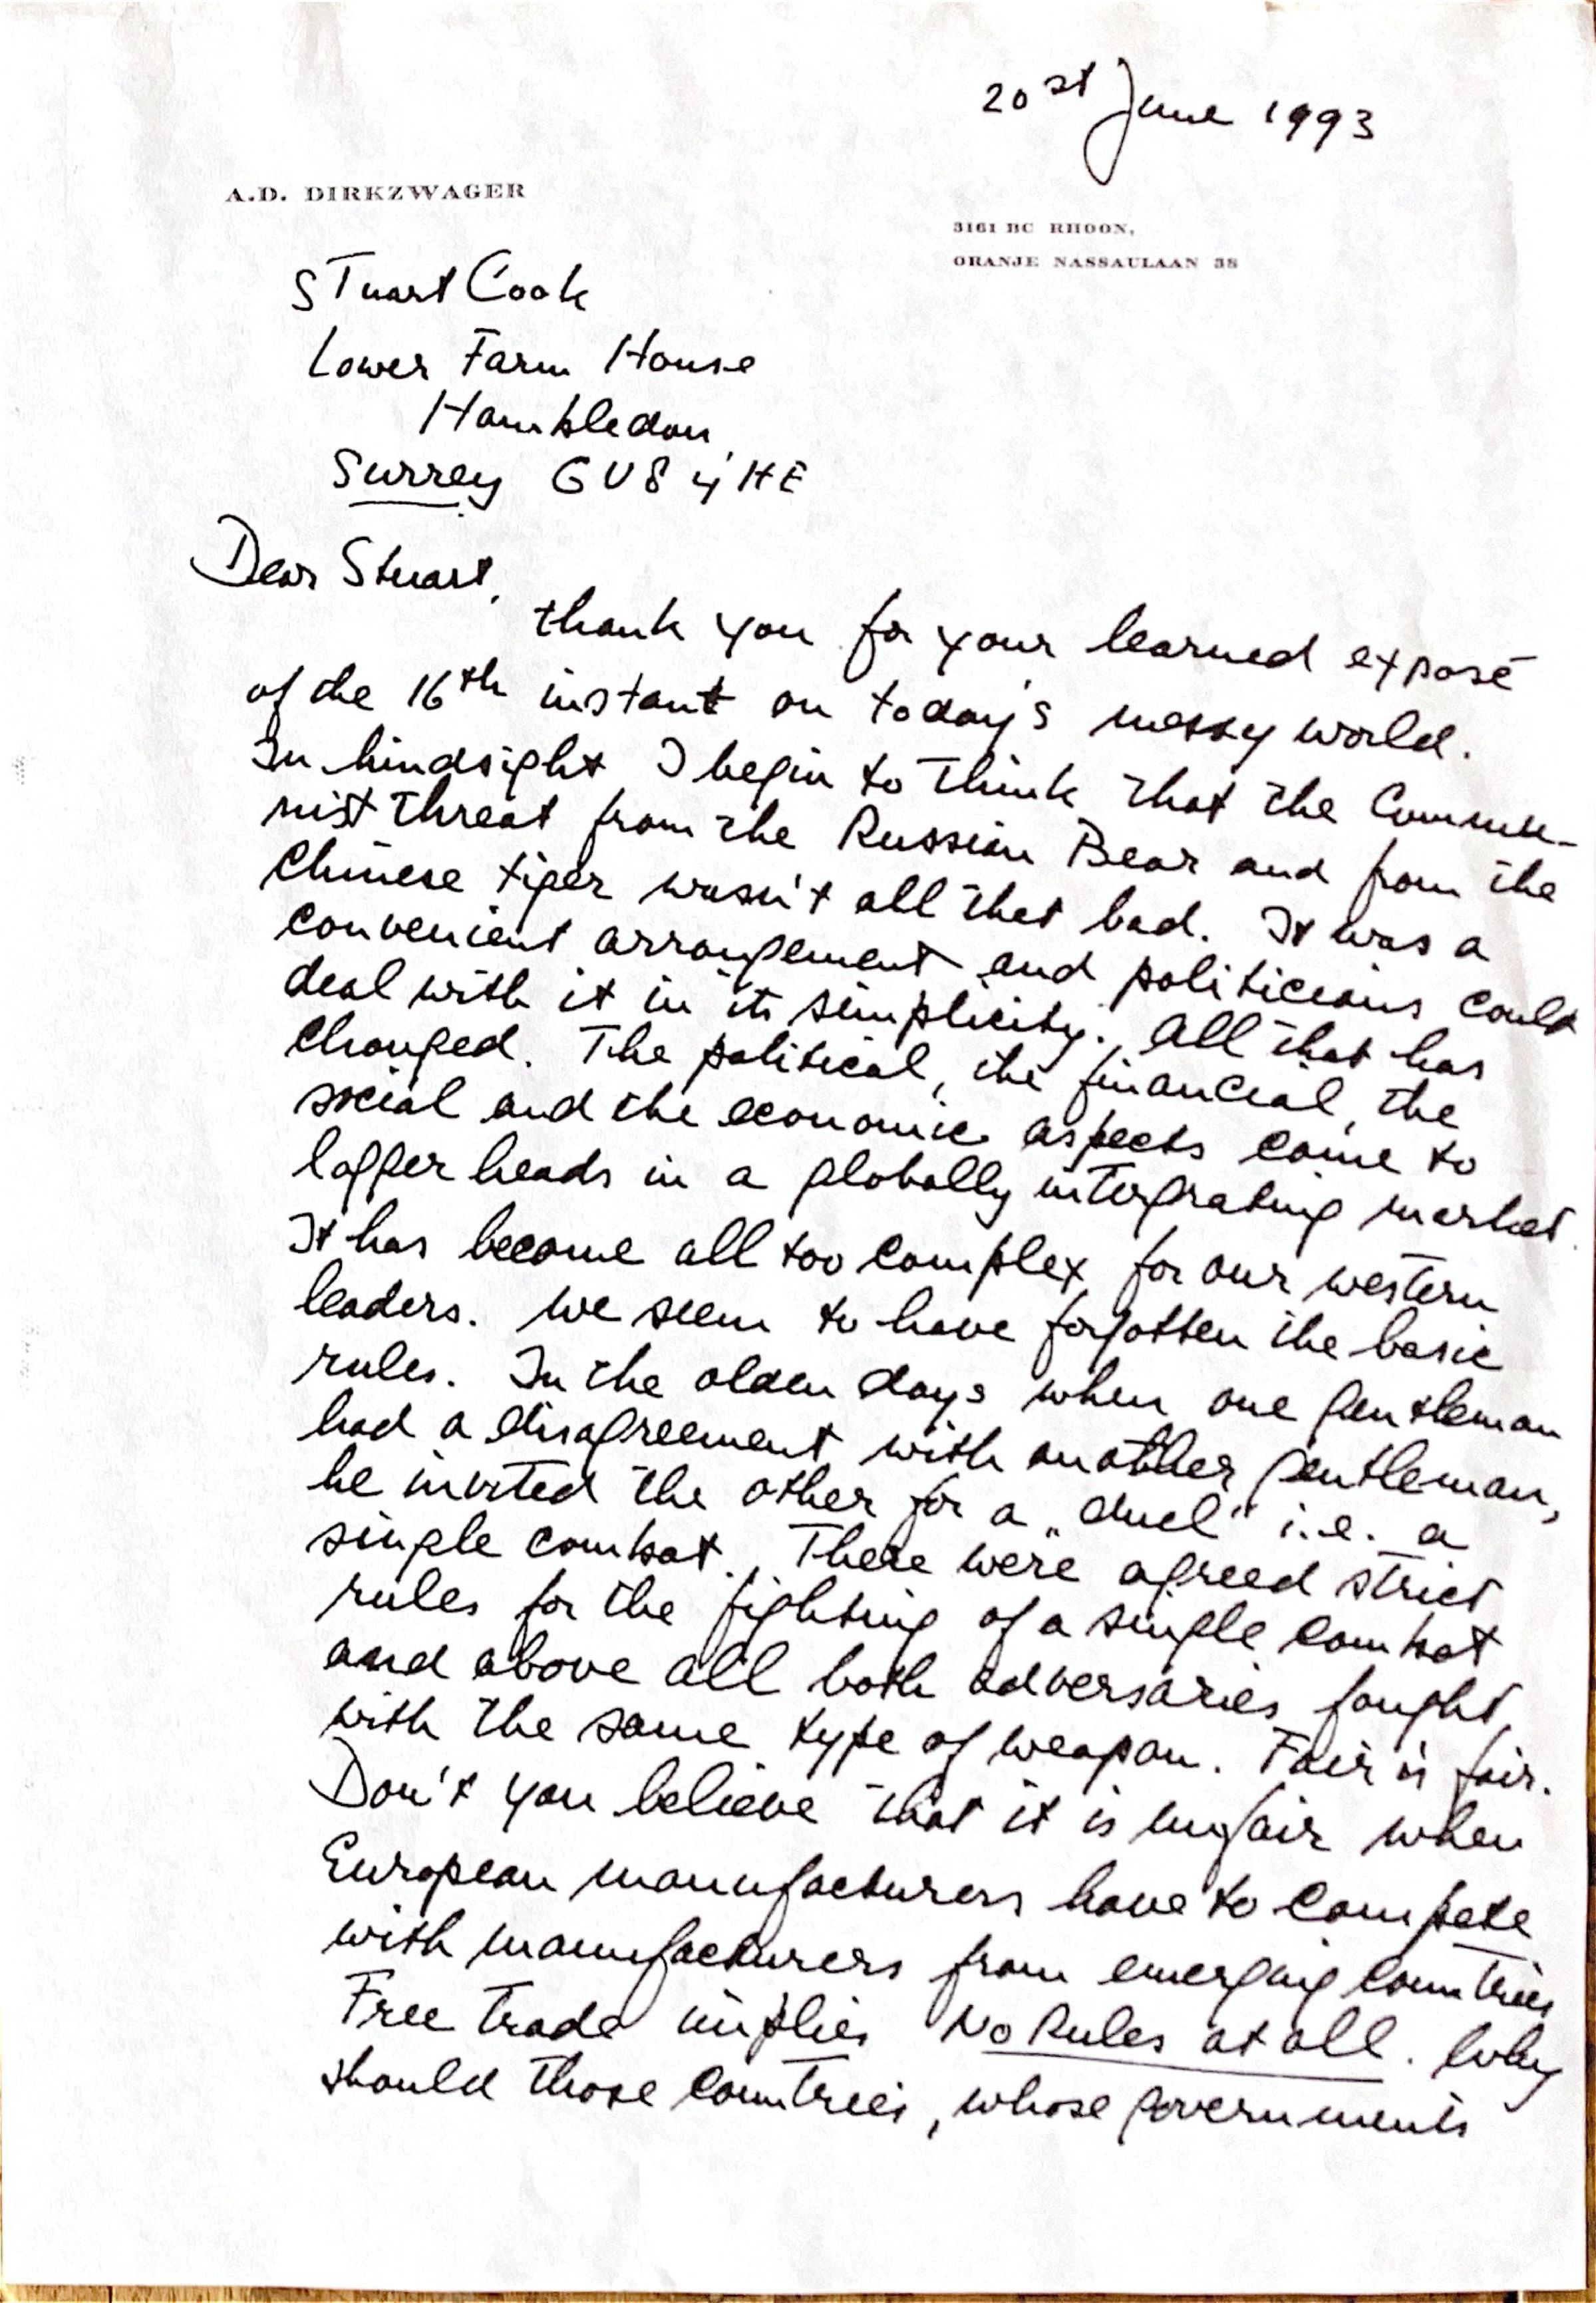 20st June 1993
A.D. DIRKZWAGER
3161 BC RHOON,
ORANJE NASSAULAAN 38
Stuart Cook
Lower Farm House
Hambledon,
Surrey GU8 4HE
Dear Stuart,
thank you for your learned exposé
of the 16th instant on today's messy world.
In hindsight I begin to think that the Commu-
nist threat from the Russian Bear and from the
Chinese tiger wasn't all that bad. It was a
convenient arrangement and politicians could
deal with it in its simplicity. All that has
changed. The political, the financial, the
social and the economic aspects come to
logger heads in a globally intergrating market.
It has become all too complex for our western
leaders. We seem to have forgotten the basic
rules. In the olden days when one gentleman
had a disagreement with another gentleman,
he invited the other for a „duel" i.e. a
single combat. There were agreed strict
rules for the fighting of a single combat
and above all both adversaries fought
with the same type of weapon. Fair is fair.
Don't you believe that it is unfair when
European manufacturers have to compete
with manufacturers from emerging countries
Free trade implies No Rules at all. Why
should those countries, whose governments